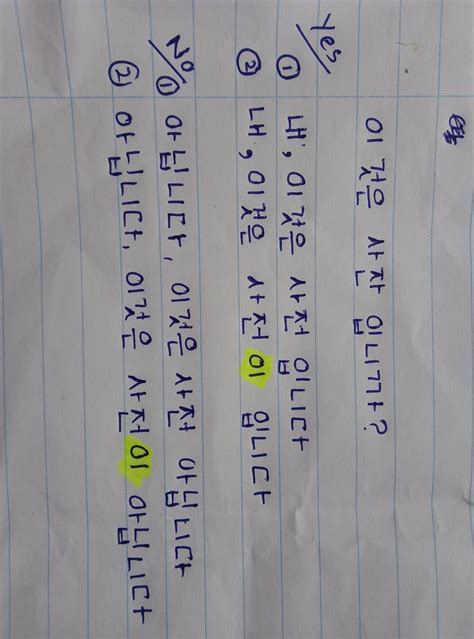 이 것은 사잔 입니까?
Yes
① 내, 이것은 사전 입니다
② 내, 이것은 사전 이 입니다
No
① 아닙니다, 이것은 사전 아닙니다
② 아닙니다, 이것은 사전 이 아닙니다